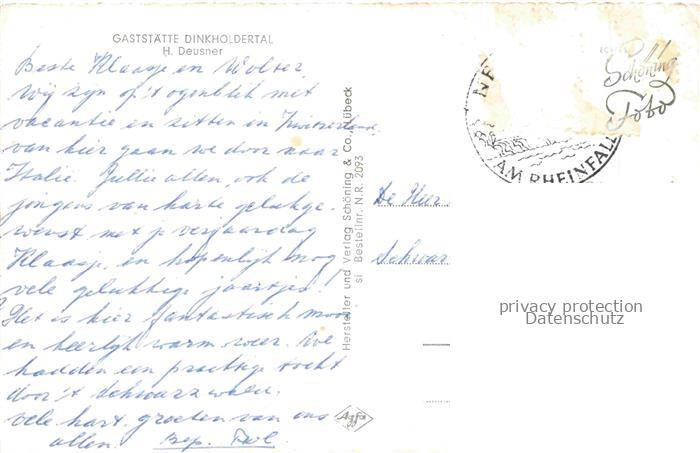 GASTSTÄTTE DINKHOLDERTAL
H. Deusner
Beste Klaasje en Wolter,
Wij zijn op 't ogenblik met
vacantie en zitten in Zwitserland,
van hier gaan we door naar
Italië. Jullie allen, ook de
jongens van harte geluk ge-
wenst met je verjaardag
Klaasje, en hopenlijk nog
vele gelukkige jaartjes.
Het is hier fantastisch mooi
en heerlijk warm weer. We
hadden een prachtige tocht
door 't schwarzwald.
vele hart. groeten van ons
allen. Bep.
Hersteller und Verlag Schöning & Co., Lübeck
si Bestellnr. N.R. 2093
Agfa
NE
AM RHEINFALL
Schöning
Foto
De Heer
Schwar
privacy protection
Datenschutz